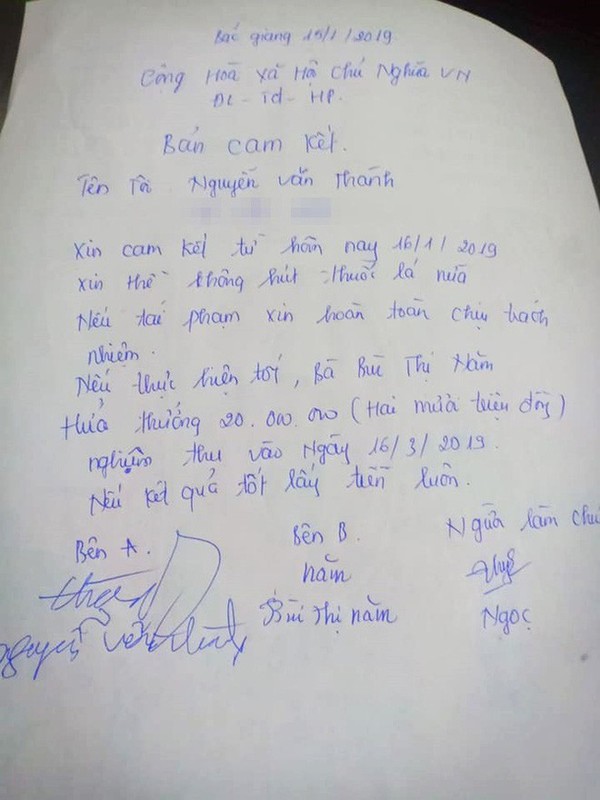 Bắc giang 15/1/2019
Cộng Hoà Xã Hội Chủ Nghĩa VN
ĐL - Td - HP.
Bản cam kết.
Tên Tôi Nguyễn Văn Thành
Xin cam kết từ hôm nay 16/1/2019
xin thề không hút thuốc lá nữa
Nếu tái phạm xin hoàn toàn chịu trách
nhiệm.
Nếu thực hiện tốt, Bà Bùi Thị Năm
Hứa thưởng 20.000.000 (Hai mươi triệu đồng)
nghiệm thu vào Ngày 16/3/2019.
Nếu kết quả tốt lấy tiền luôn.
Bên A. Bên B. Người làm chứ
năm
Bùi thị năm Ngọc
Nguyễn Văn